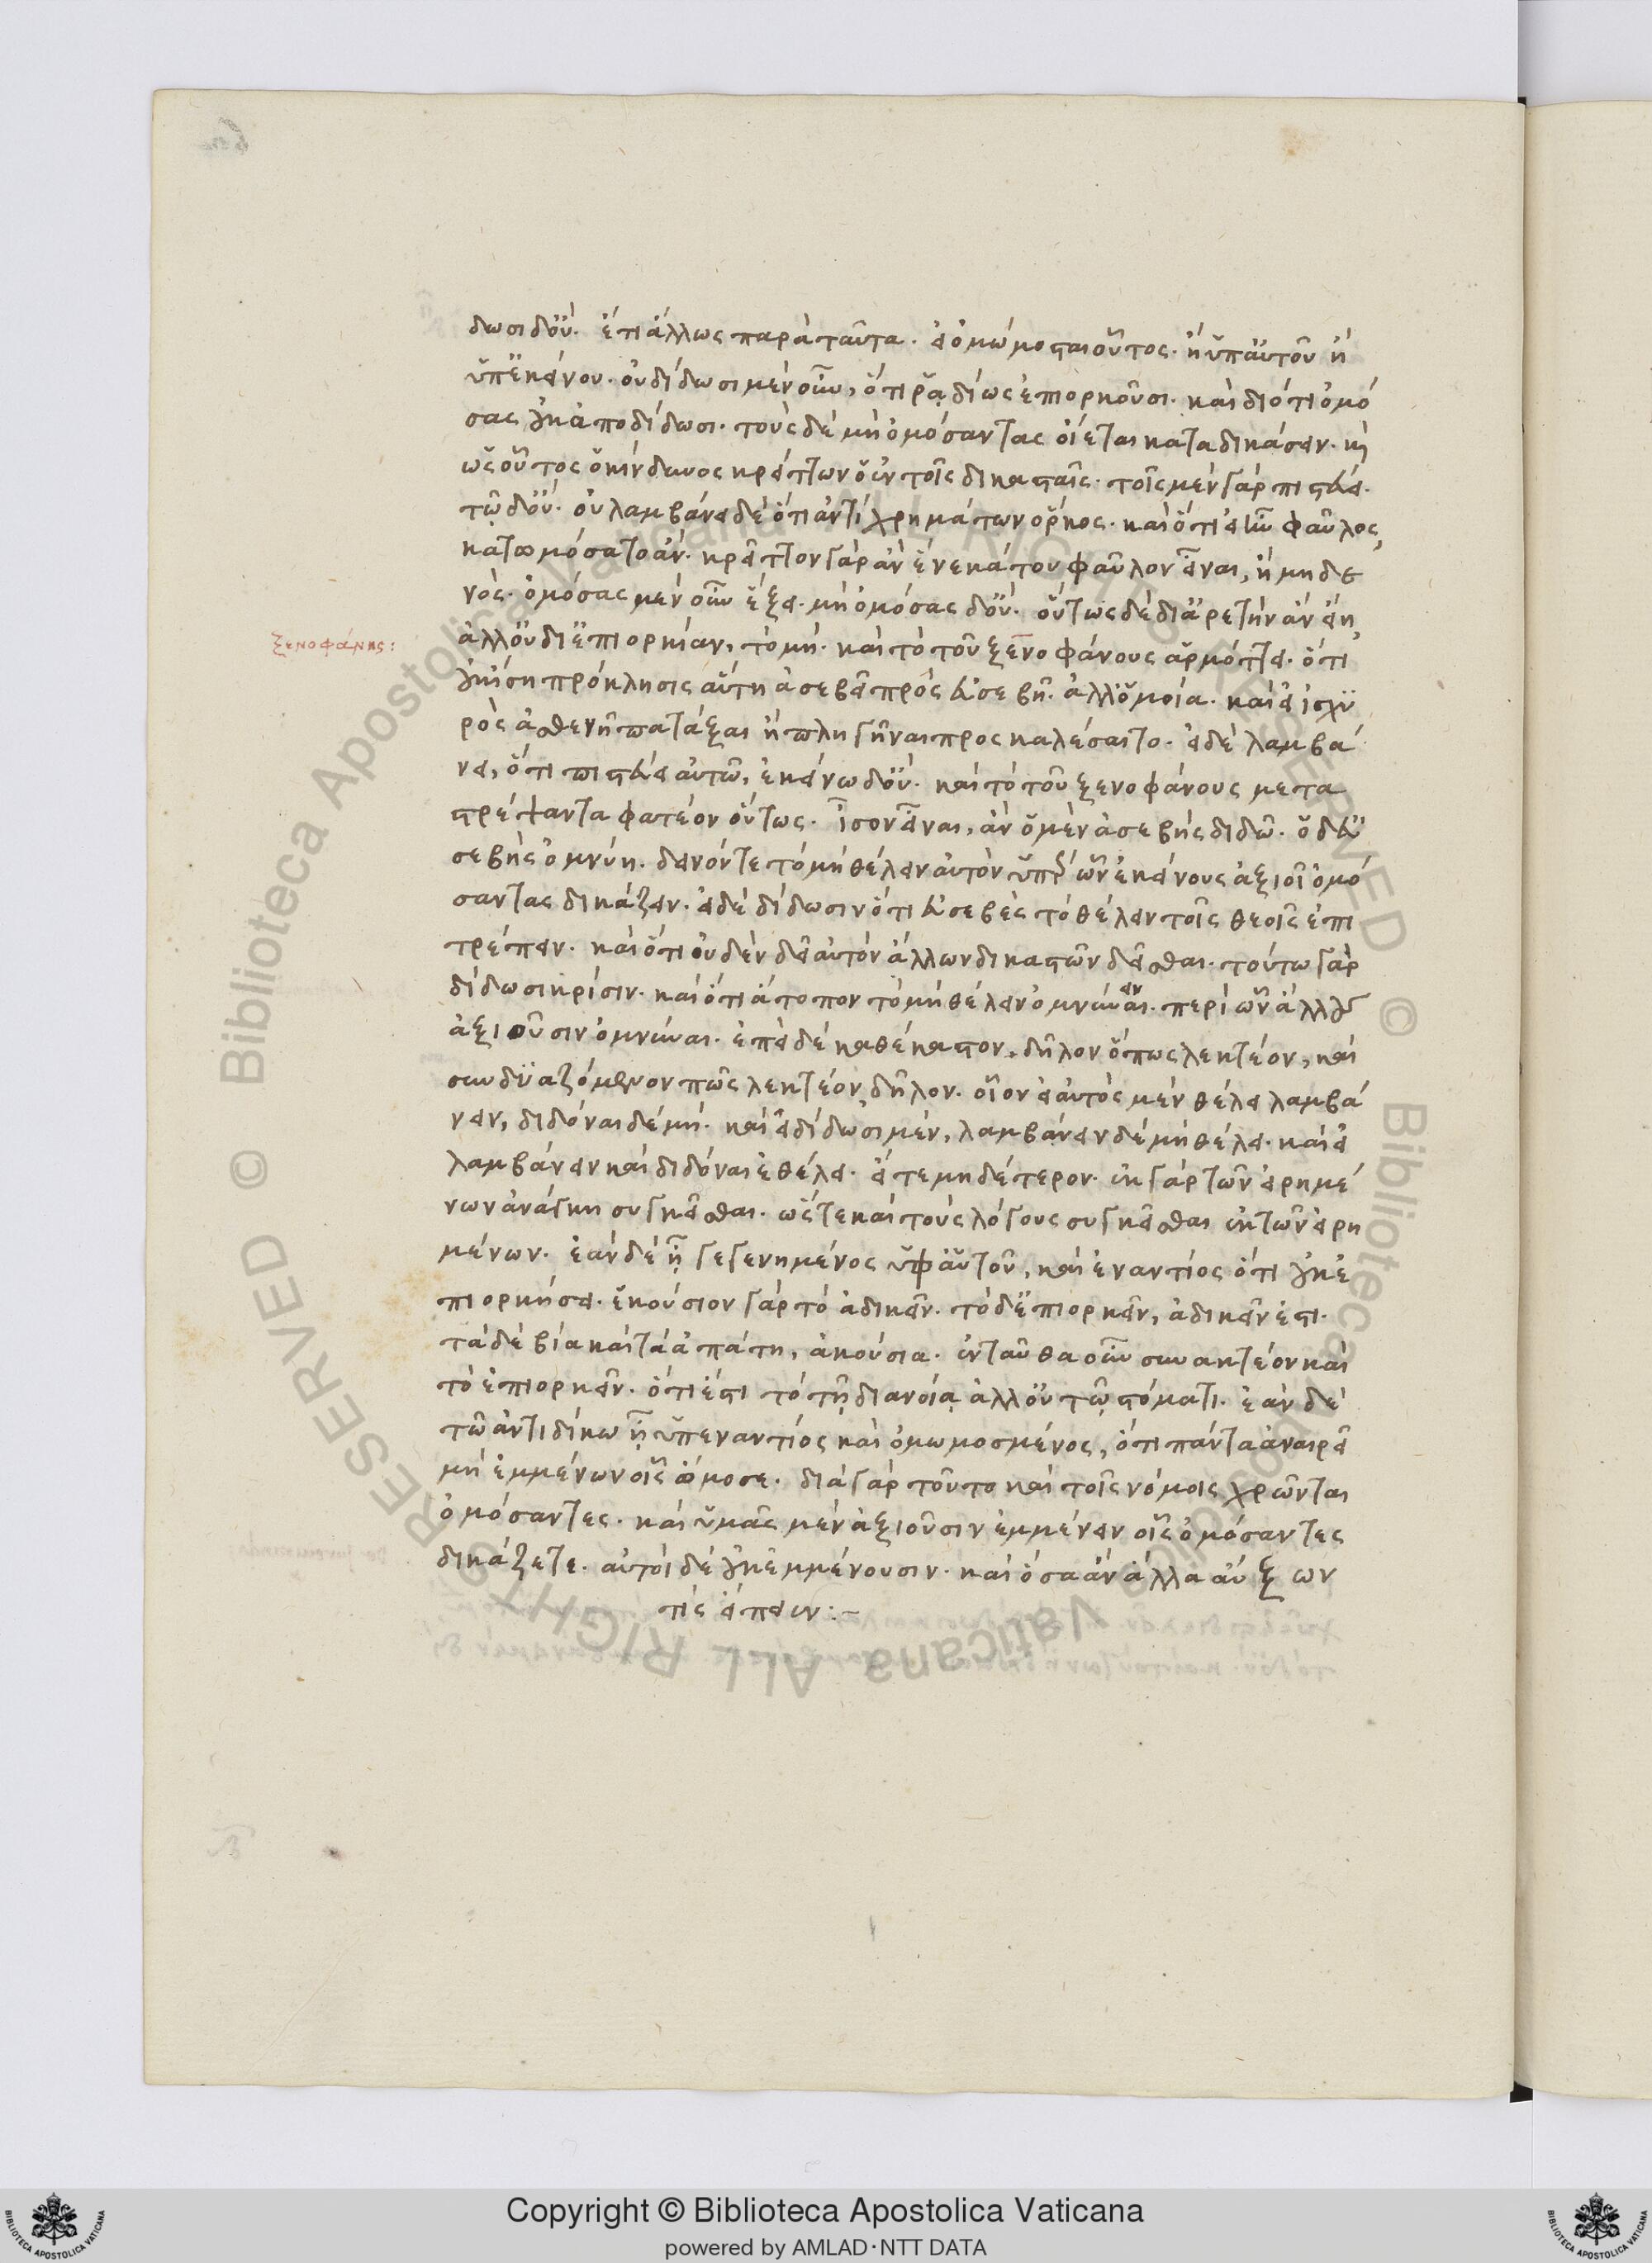 δωσι δ' οὔ. ἔτι ἄλλως παρὰ ταῦτα. εἰ ὀμώμοσται οὗτος. ἢ ὑπ' αὐτοῦ ἢ
ὑπ' ἐκείνου. οὐ δίδωσι μὲν οὖν, ὅτι ῥᾳδίως ἐπιορκοῦσι. καὶ διότι ὀμό
σας οὐκ ἀποδίδωσι. τοὺς δὲ μὴ ὀμόσαντας οἴεται καταδικάσειν. καὶ
ὡς οὗτος ὁ κίνδυνος κρείττων ὁ ἐν τοῖς δικασταῖς. τοῖς μὲν γὰρ πιστεύει.
τῷ δ' οὔ. οὐ λαμβάνει δὲ ὅτι ἀντὶ χρημάτων ὅρκος. καὶ ὅτι εἰ ἦν φαῦλος,
κατωμόσατο ἄν. κρεῖττον γὰρ ἂν ἕνεκά του φαῦλον εἶναι, ἢ μηδε
νός. ὀμόσας μὲν οὖν ἕξει. μὴ ὀμόσας δ' οὔ. οὕτως δὲ δι' ἀρετὴν ἂν εἴη,
ξενοφάνης:
ἀλλ' οὐ δι' ἐπιορκίαν, τὸ μή. καὶ τὸ τοῦ ξενοφάνους ἁρμόττει. ὅτι
οὐκ ἴση πρόκλησις αὕτη ἀσεβεῖ πρὸς εὐσεβῆ. ἀλλ' ὁμοία. καὶ εἰ ἰσχυ
ρὸς ἀσθενῆ πατάξαι ἢ πληγῆναι προσκαλέσαιτο. εἰ δὲ λαμβά
νει, ὅτι πιστεύει αὐτῷ, ἐκείνω δ' οὔ. καὶ τὸ τοῦ ξενοφάνους μετα
στρέψαντα φατέον οὕτως. ἴσον εἶναι, ἂν ὁ μὲν ἀσεβὴς διδῷ. ὁ δ' εὐ
σεβὴς ὀμνύη. δεινόν τε τὸ μὴ θέλειν αὐτὸν ὑπὲρ ὧν ἐκείνους ἀξιοῖ ὀμό
σαντας δικάζειν. εἰ δὲ δίδωσιν ὅτι εὐσεβὲς τὸ θέλειν τοῖς θεοῖς ἐπι
τρέπειν. καὶ ὅτι οὐδὲν δεῖ αὐτὸν ἄλλων δικαστῶν δεῖσθαι. τούτω γὰρ
δίδωσι κρίσιν. καὶ ὅτι ἄτοπον τὸ μὴ θέλειν ὀμνύναι. περὶ ὧν ἄλλους
ἀξιοῦσιν ὀμνύναι. ἐπεὶ δὲ καθ' ἕκαστον, δῆλον ὅπως λεκτέον, καὶ
συνδυαζόμενον πῶς λεκτέον, δῆλον. οἷον εἰ αὐτὸς μὲν θέλει λαμβά
νειν, διδόναι δὲ μή. καὶ εἰ δίδωσι μὲν, λαμβάνειν δὲ μὴ θέλει. καὶ εἰ
λαμβάνειν καὶ διδόναι ἐθέλει. εἴτε μηδέτερον. ἐκ γὰρ τῶν εἰρημέ
νων ἀνάγκη συγκεῖσθαι. ὥστε καὶ τοὺς λόγους συγκεῖσθαι ἐκ τῶν εἰρη
μένων. ἐὰν δὲ ᾖ γεγενημένος ὑφ' αὑτοῦ, καὶ ἐναντίος ὅτι οὐκ ἐ
πιορκήσει. ἑκούσιον γὰρ τὸ ἀδικεῖν. τὸ δ' ἐπιορκεῖν, ἀδικεῖν ἐστι.
τὰ δὲ βία καὶ τὰ ἀπάτη, ἀκούσια. ἐνταῦθα οὖν συνακτέον καὶ
τὸ ἐπιορκεῖν. ὅτι ἔστι τὸ τῇ διανοίᾳ ἀλλ' οὐ τῷ στόματι. ἐὰν δὲ
τῷ ἀντιδίκω ᾖ ὑπεναντίος καὶ ὀμωμοσμένος, ὅτι πάντα ἀναιρεῖ
μὴ ἐμμένων οἷς ὤμοσε. διὰ γὰρ τοῦτο καὶ τοῖς νόμοις χρῶνται
ὀμόσαντες. καὶ ὑμᾶς μὲν ἀξιοῦσιν ἐμμένειν οἷς ὀμόσαντες
δικάζετε. αὐτοὶ δὲ οὐκ ἐμμένουσιν. καὶ ὅσα ἂν ἄλλα αὔξων
τίς εἴπειεν:-
Copyright © Biblioteca Apostolica Vaticana
powered by AMLAD·NTT DATA